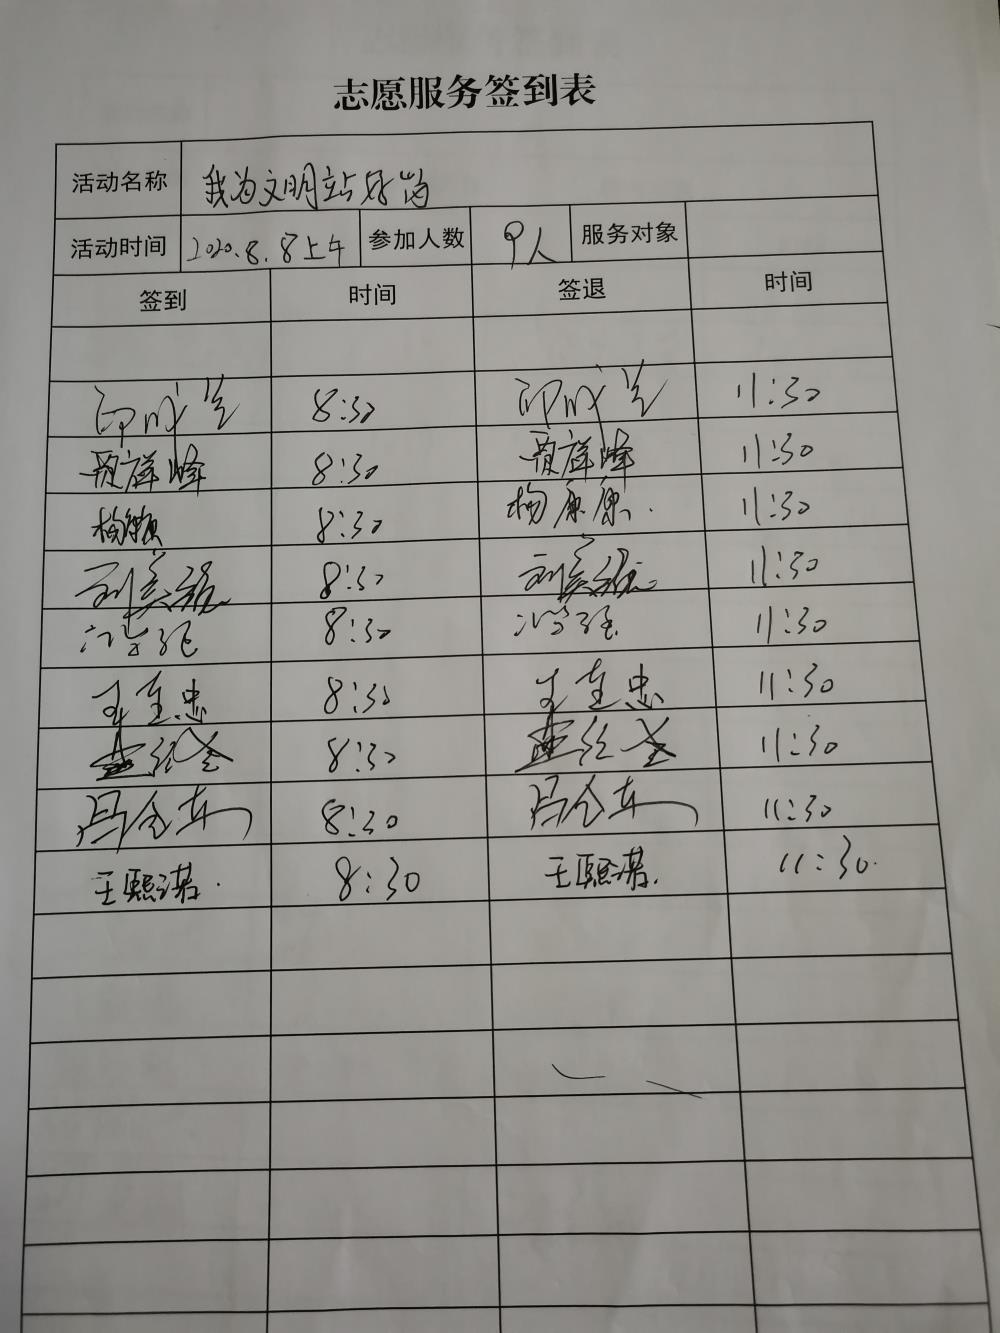 志愿服务签到表
活动名称 我为文明站好岗
活动时间 2020.8.8上午 参加人数 9人 服务对象
签到 时间 签退 时间
8:30 11:30
贾祥峰 8:30 贾祥峰 11:30
杨 8:30 杨康康. 11:30
刘英 8:30 刘英 11:30
8:30 11:30
王道忠 8:30 王道忠 11:30
8:30 11:30
冯全东 8:30 冯全东 11:30
王熙诺. 8:30 王熙诺. 11:30.